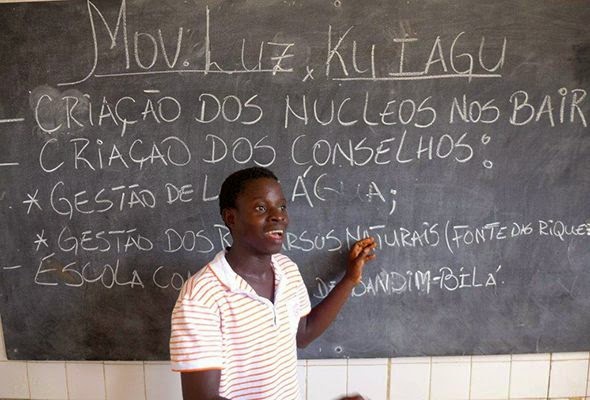 MOV. LUZ x KUIAGU
- CRIAÇÃO DOS NUCLEOS NOS BAIR
- CRIAÇAO DOS CONSELHOS:
* GESTÃO DE ÁGUA;
* GESTÃO DOS R RSOS NATURAIS (FONTE DAS RIQUEZ
- ESCOLA DE BANDIM-BILÁ.